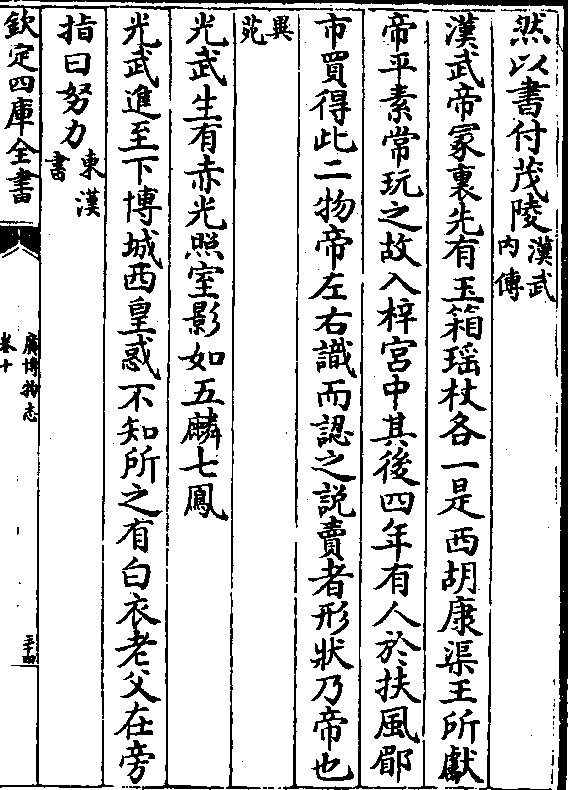 然以書付茂陵漢武內傳
漢武帝冢裏先有玉箱瑶杖各一是西胡康渠王所獻
帝平素常玩之故入梓宮中其後四年有人於扶風郿
市買得此二物帝左右識而認之說賣者形狀乃帝也
異苑
光武生有赤光照室影如五麟七鳳
光武進至下博城西皇惑不知所之有白衣老父在旁
指曰努力東漢書
欽定四庫全書
廣博物志
卷十
二十四